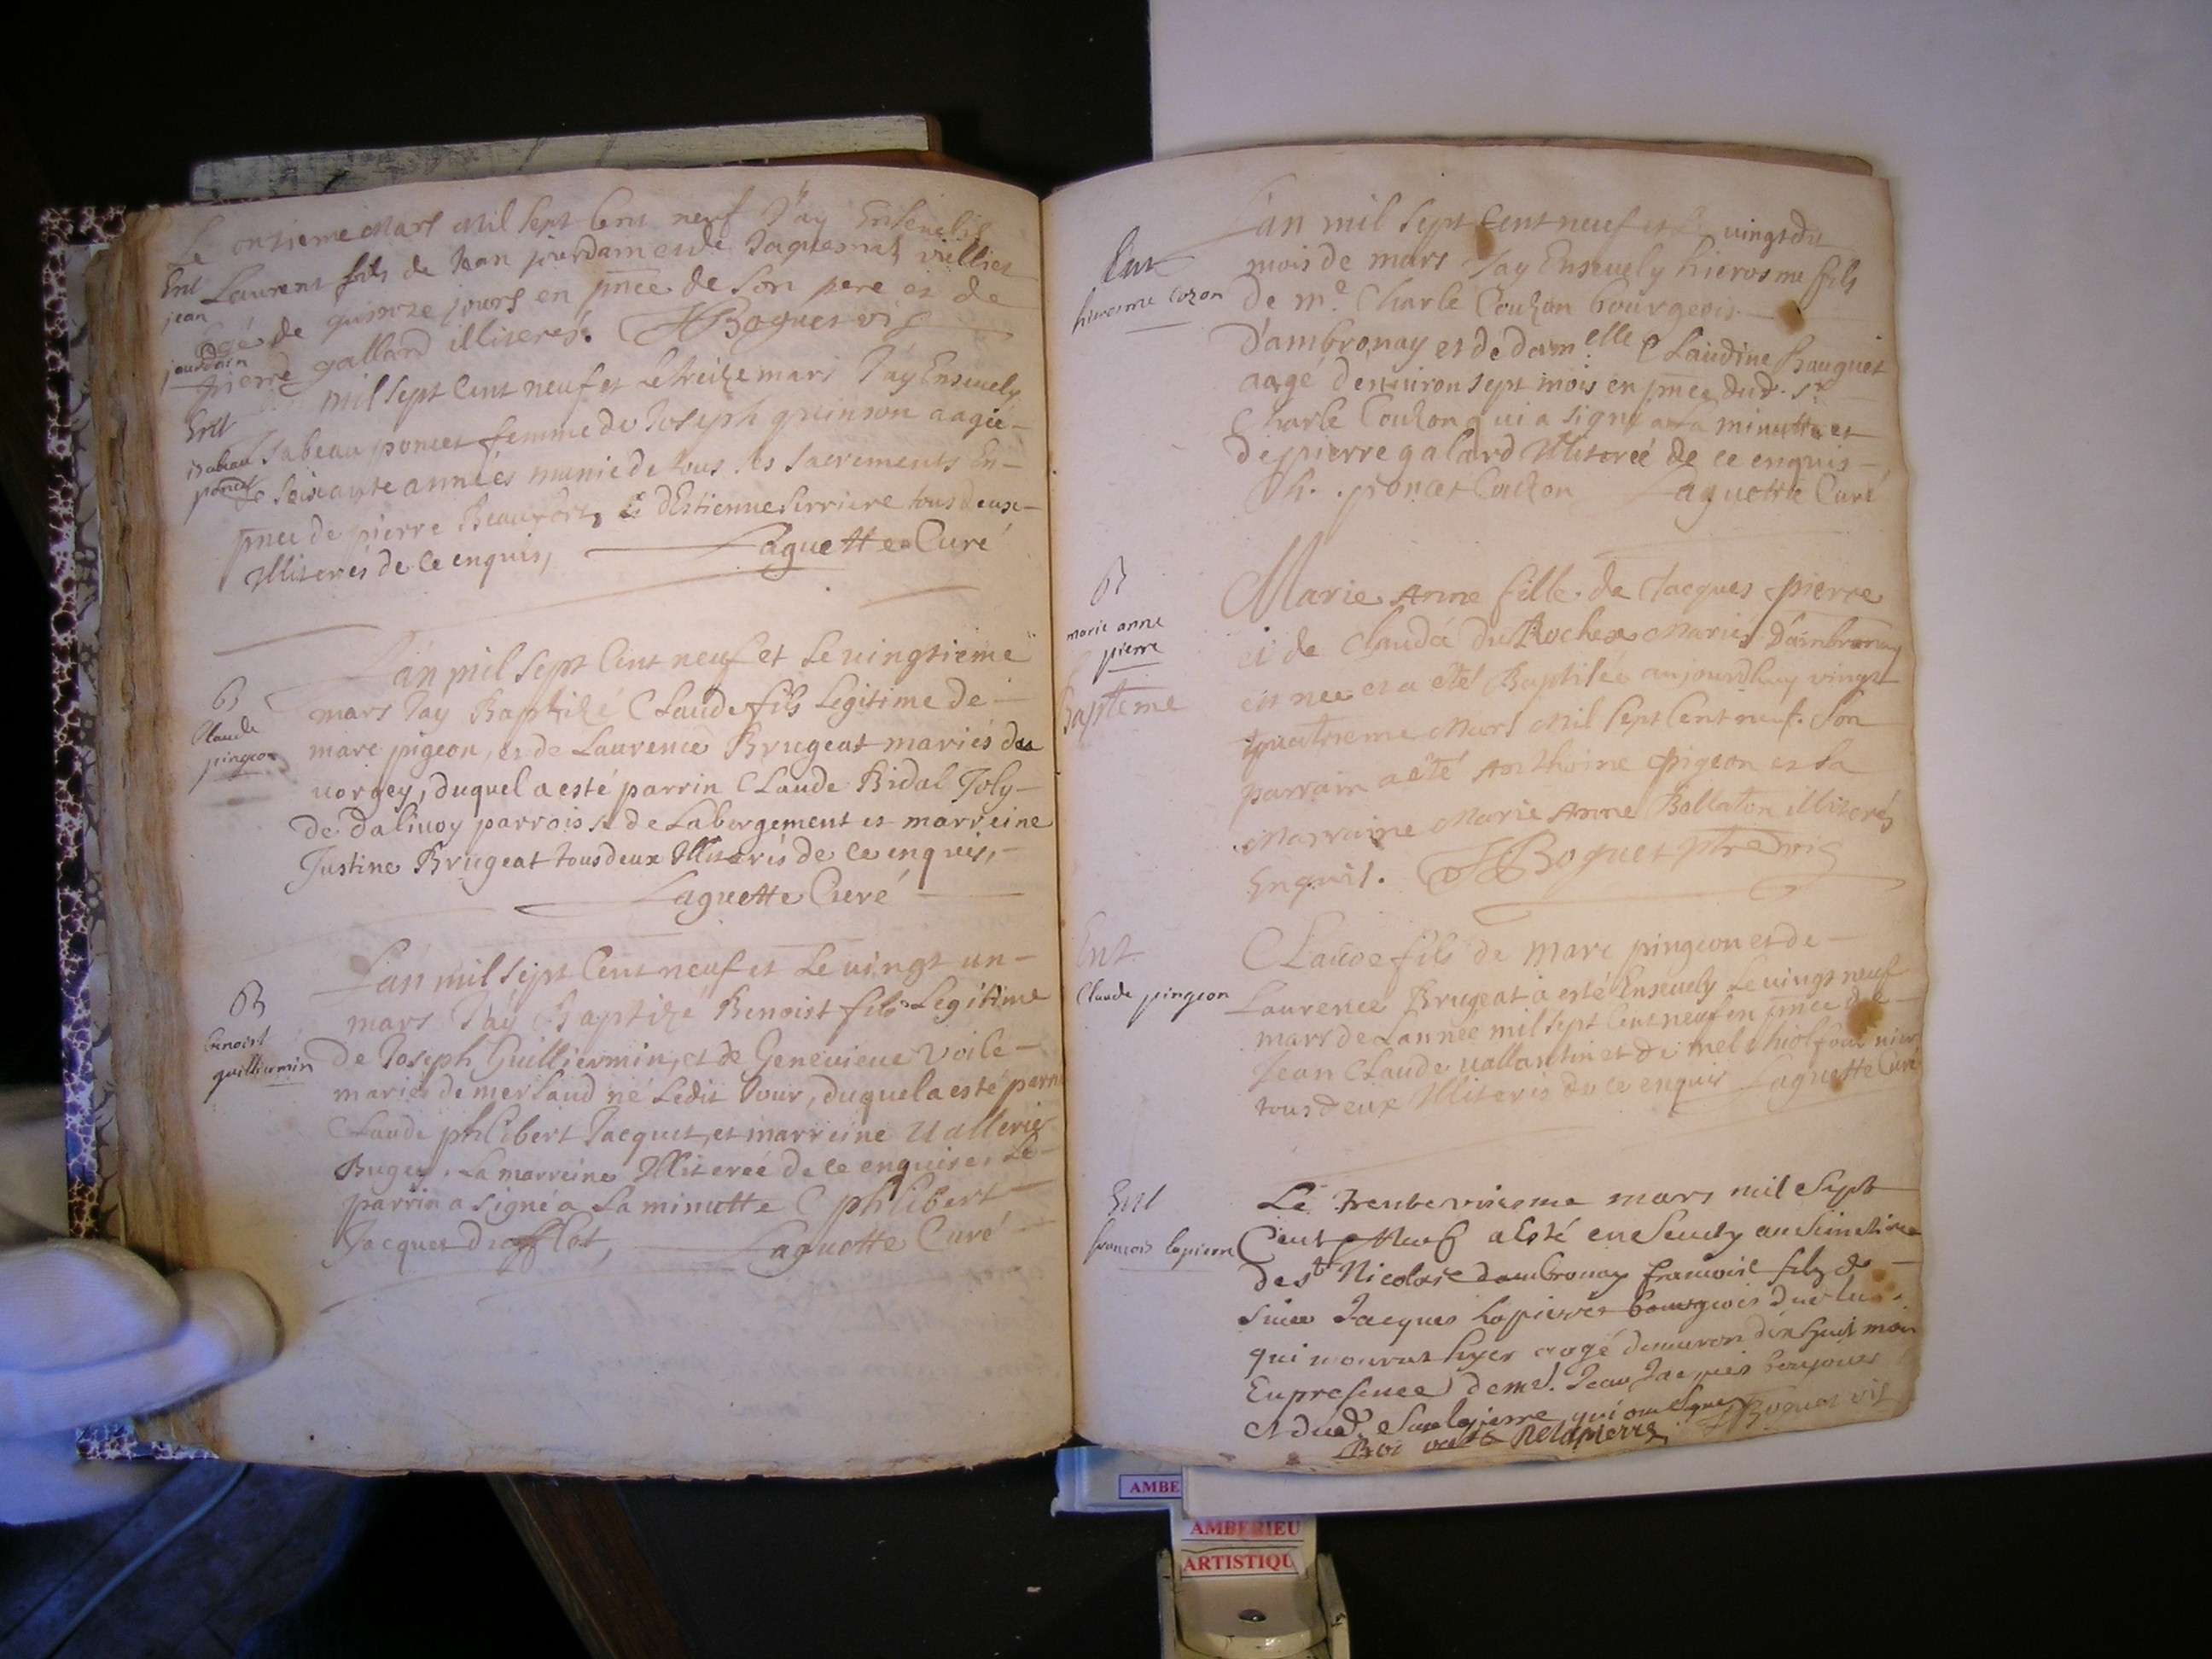 Le onzieme Mars Mil Sept Cent neuf J'ay Ensevelis
Ent Laurent fils de Jean jourdam et de Jaquesmat vullies
jean
agé de quinze jours en pnce de Son pere et de
jourdain
pierre gallard illiterés. Boguet vic
mil sept Cent neuf et le treize mars J'ay Ensevely
Ent
isabeau Isabeau poncet femme de Joseph quinson aagée
poncet de soixante années munie de tous les sacrements En
pnce de pierre Beaufort, & d'Estienne Serriere tous deux
Illiterés de ce enquis, Laguette Curé
L'an mil sept Cent neuf et le vingtieme
B
Claude
pingeon
mars J'ay Baptizé Claude fils Legitime de
marc pigeon, et de Laurence Brugeat mariés du
vorgey, duquel a esté parrin Claude Bidal Joly
de dalivoy parroisse de Labergement et marreine
Justine Brugeat tous deux Illiterés de ce enquis,
Laguette Curé
L'an mil sept Cent neuf et le vingt un
B
benoist
guilliermin
mars J'ay Baptizé Benoist fils Legitime
de Joseph Guilliermin, et de Genevieve Voile
mariés de merland né Ledit Jour, duquel a esté parrin
Claude philibert Jacquet, et marreine Vallerie
Bugey, La marreine Illiterée de ce enquise, Le
parrin a signé a La minutte C philibert
Jacquet dufflot, Laguette Curé
L'an mil sept Cent neuf et vingt du
Ent
hierosme Cozon
mois de mars J'ay Ensevely hierosme fils
de me. Charle Couzon bourgeois
D'ambronay et de damelle Claudine Bouguet
aagé d'environ sept mois en pnce dud. sr
Charle Couzon qui a signé a la minutte et
de pierre galard Illiteré de ce enquis
Ch. poncet Couzon Laguette Curé
B
marie anne
pierre
Baptême
Marie Anne fille de Jacques pierre
et de Claudâ du Rocher Mariés D'ambronay
est nee et a été Baptisée aujourdhuy vingt
quatrieme Mars Mil Sept Cent neuf. Son
parrain a été Anthoine Pigeon et sa
Marraine Marie Anne Ballaton illiterés
Enquis. Boguet ptre vic
Ent.
Claude pingeon
Claude fils de Marc pingeon et de
Laurence Brugeat a esté Ensevely Le vingt neuf
mars de L'année mil sept Cent neuf en pnce de
Jean Claude vallantin et de melchior fournier
tous deux Illiterés de ce enquis Laguette Curé
Ent
francois lapierre
Le trente mars mil Sept
Cent Neuf a Esté enSevely au Simetiere
de st Nicolas dambronay francois filz de
sieur Jacques Lapierre bourgeois dud lieu
qui mourut hyer aagé denviron dix huit mois
En presence de mr. Jean Jacques
et dud. Sieur lapierre qui ont signé
Delapierre Boguet vic
AMBE
AMBERIEU
ARTISTIQU